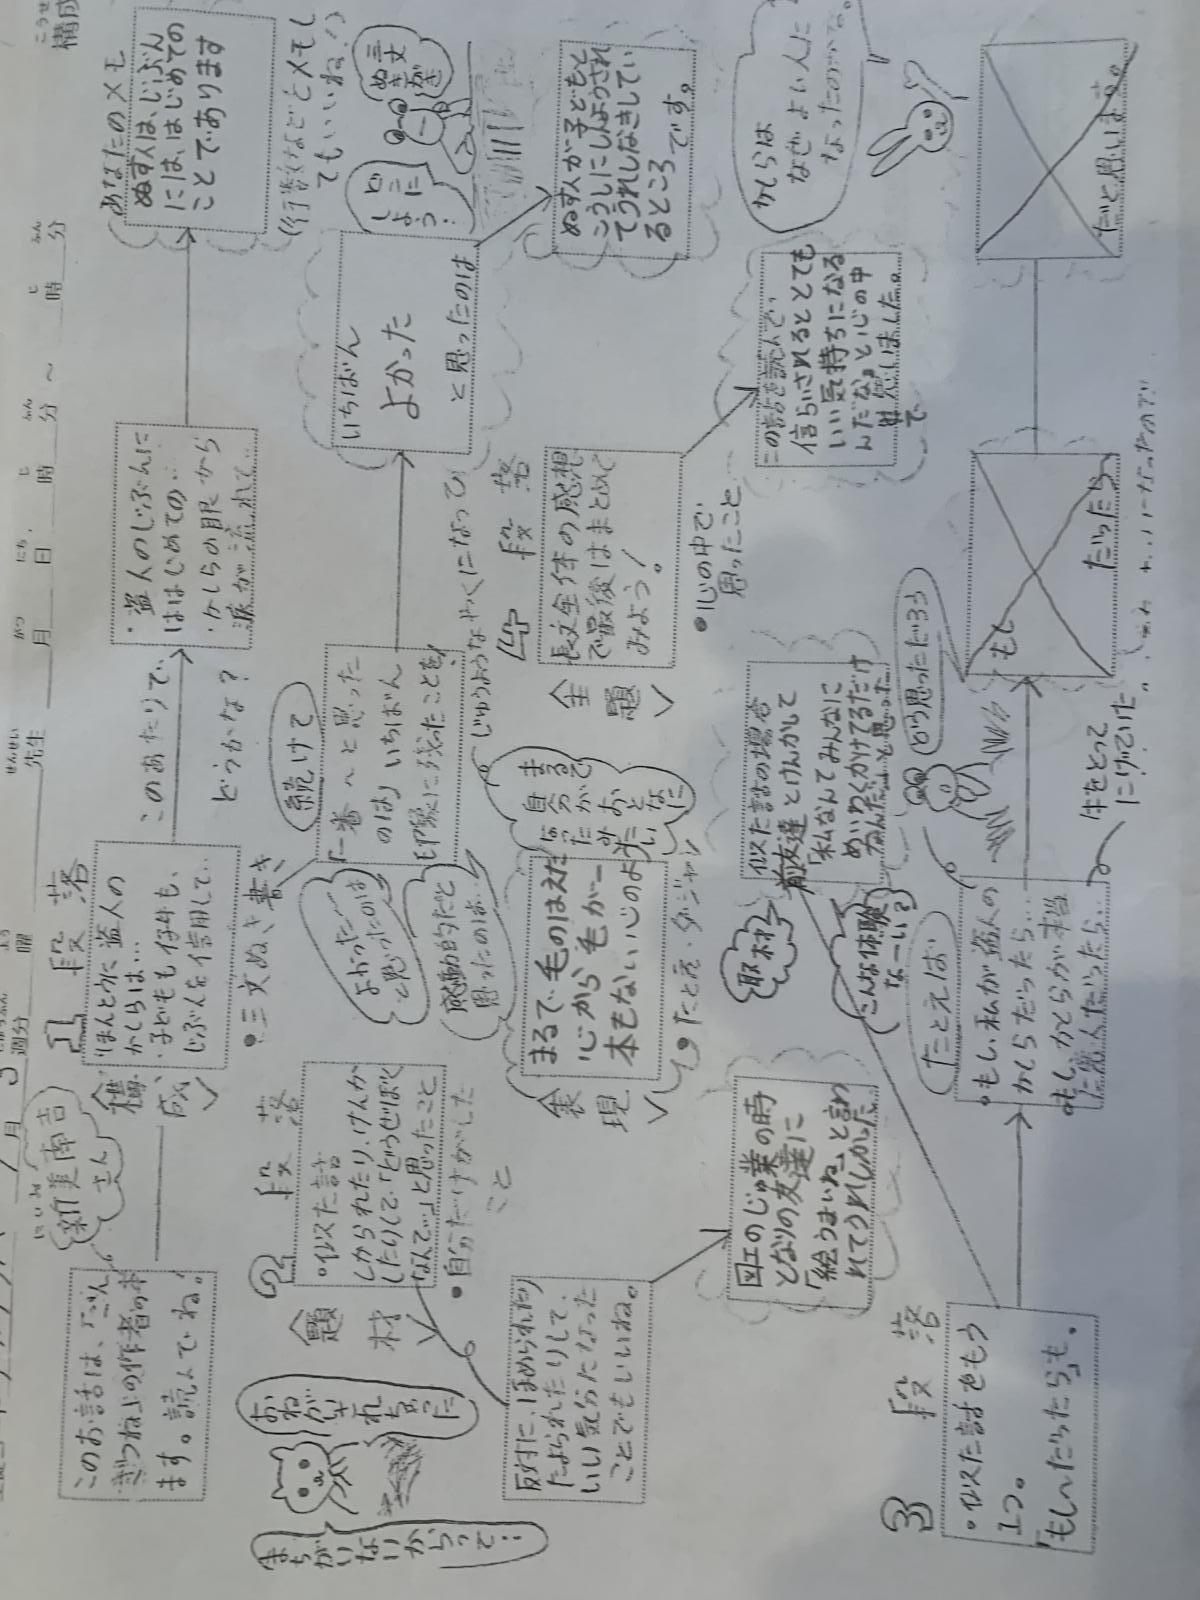 構成
こうせ
月
日
時
分
～
時
分
がつ
にち
じ
ふん
じ
ふん
先生
せんせい
週分
曜
よう
このお話は、「ごん
ぎつね」の作者の本
ます。読んでね。
にいみ
新美南吉
さん
1 段落
構成
「ほんとうに盗人の
かしらは…
・子どもも仔牛も、
じぶんを信用して…
このあたりで、
どうかな?
・盗人のじぶんに
はじめての…
・かしらの眼から
涙が流れて…
あなたのメモ
ぬす人は、じぶん
には、はじめての
ことであります
(行数などをメモし
てもいいね!)
まちがいないからって…
おねがいされちゃった
2 段落
題材
・似た話
しかられたり、けんか
したりして、「どうせぼく
なんて…」と思ったこと
・自分だけがした
こと
・三文ぬき書き
続けて
「一番〜と思った
のは」いちばん
印象に残ったことを、
よかった
と思ったのは
感動的だったと
思ったのは…
いちばん
よかった
と思ったのは
どこに
しよう!
三文
ぬき
がき
ぬす人が子どもと
こうしにしんようされ
てうれしなきしてい
るところです。
反対に、ほめられたり
たよられたりして、
いい気分になった
ことでもいいね。
表現
まるで毛のはえた
心から毛が一
本もない心のよう
・たとえ・ダジャレ
じゅうようなやくになって
段落
全題
長文全体の感想
で最後はまとめて
みよう!
・心の中で
思ったこと
この話を読んで、
信らいされるととても
いい気持ちになる
んだな」と心の中
で思いました。
かしらは
なぜよい人に
なったのかな。
図工のじゅ業の時
となりの友達に
「絵うまいね」と言わ
れてうれしかった
取材
似た話の場合
前友達とけんかして
「私なんてみんなに
めいわくかけてるだけ
なんだ…」と思った
こんな体験
なーい?
3 段落
・似た話をもう
1つ。
「もし〜だったら」も。
たとえば
・もし、私が盗人の
かしらだったら…
・もし、かしらが本当
に悪人だったら…
どう思っただろう
牛をとって
にげていた
もし
だったら
だと思います。